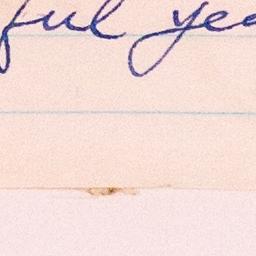 ful yea